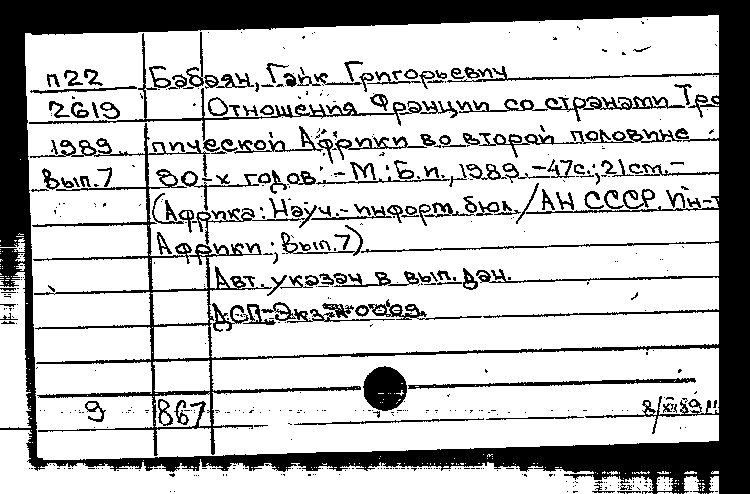 п22 Бабаян, Гаик Григорьевич
2619 Отношения Франции со странами Тро
1989 пической Африки во второй половине
Вып.7 80-х годов. - М.: Б.и., 1989. - 47с.; 21см. -
(Африка: Науч.-информ. бюл. / АН СССР. Ин-т
Африки; Вып.7).
Авт. указан в вып. дан.
ДСП-Экз.№0009.
9 867 8/XII89